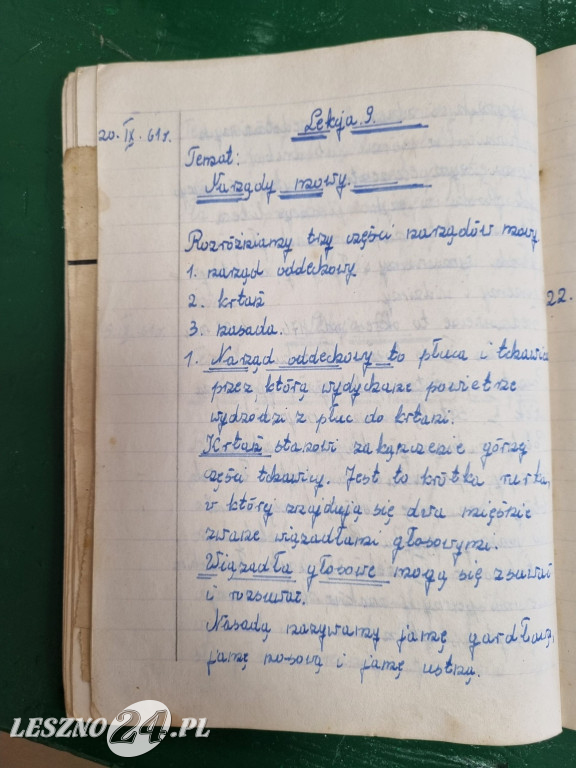 20. IX. 61 r.
Lekcja 9.
Temat:
Narządy mowy.
Rozróżniamy trzy części narządów mowy
1. narząd oddechowy
2. krtań
3. nasada.
1. Narząd oddechowy to płuca i tchawica
przez którą wydychane powietrze
wychodzi z płuc do krtani.
Krtań stanowi zakończenie górnej
części tchawicy. Jest to krótka rurka,
w której znajdują się dwa mięśnie
zwane wiązadłami głosowymi.
Wiązadła głosowe mogą się zsuwać
i rozsuwać.
Nasadą nazywamy jamę gardłową,
jamę nosową i jamę ustną.
22.
LESZNO24.PL